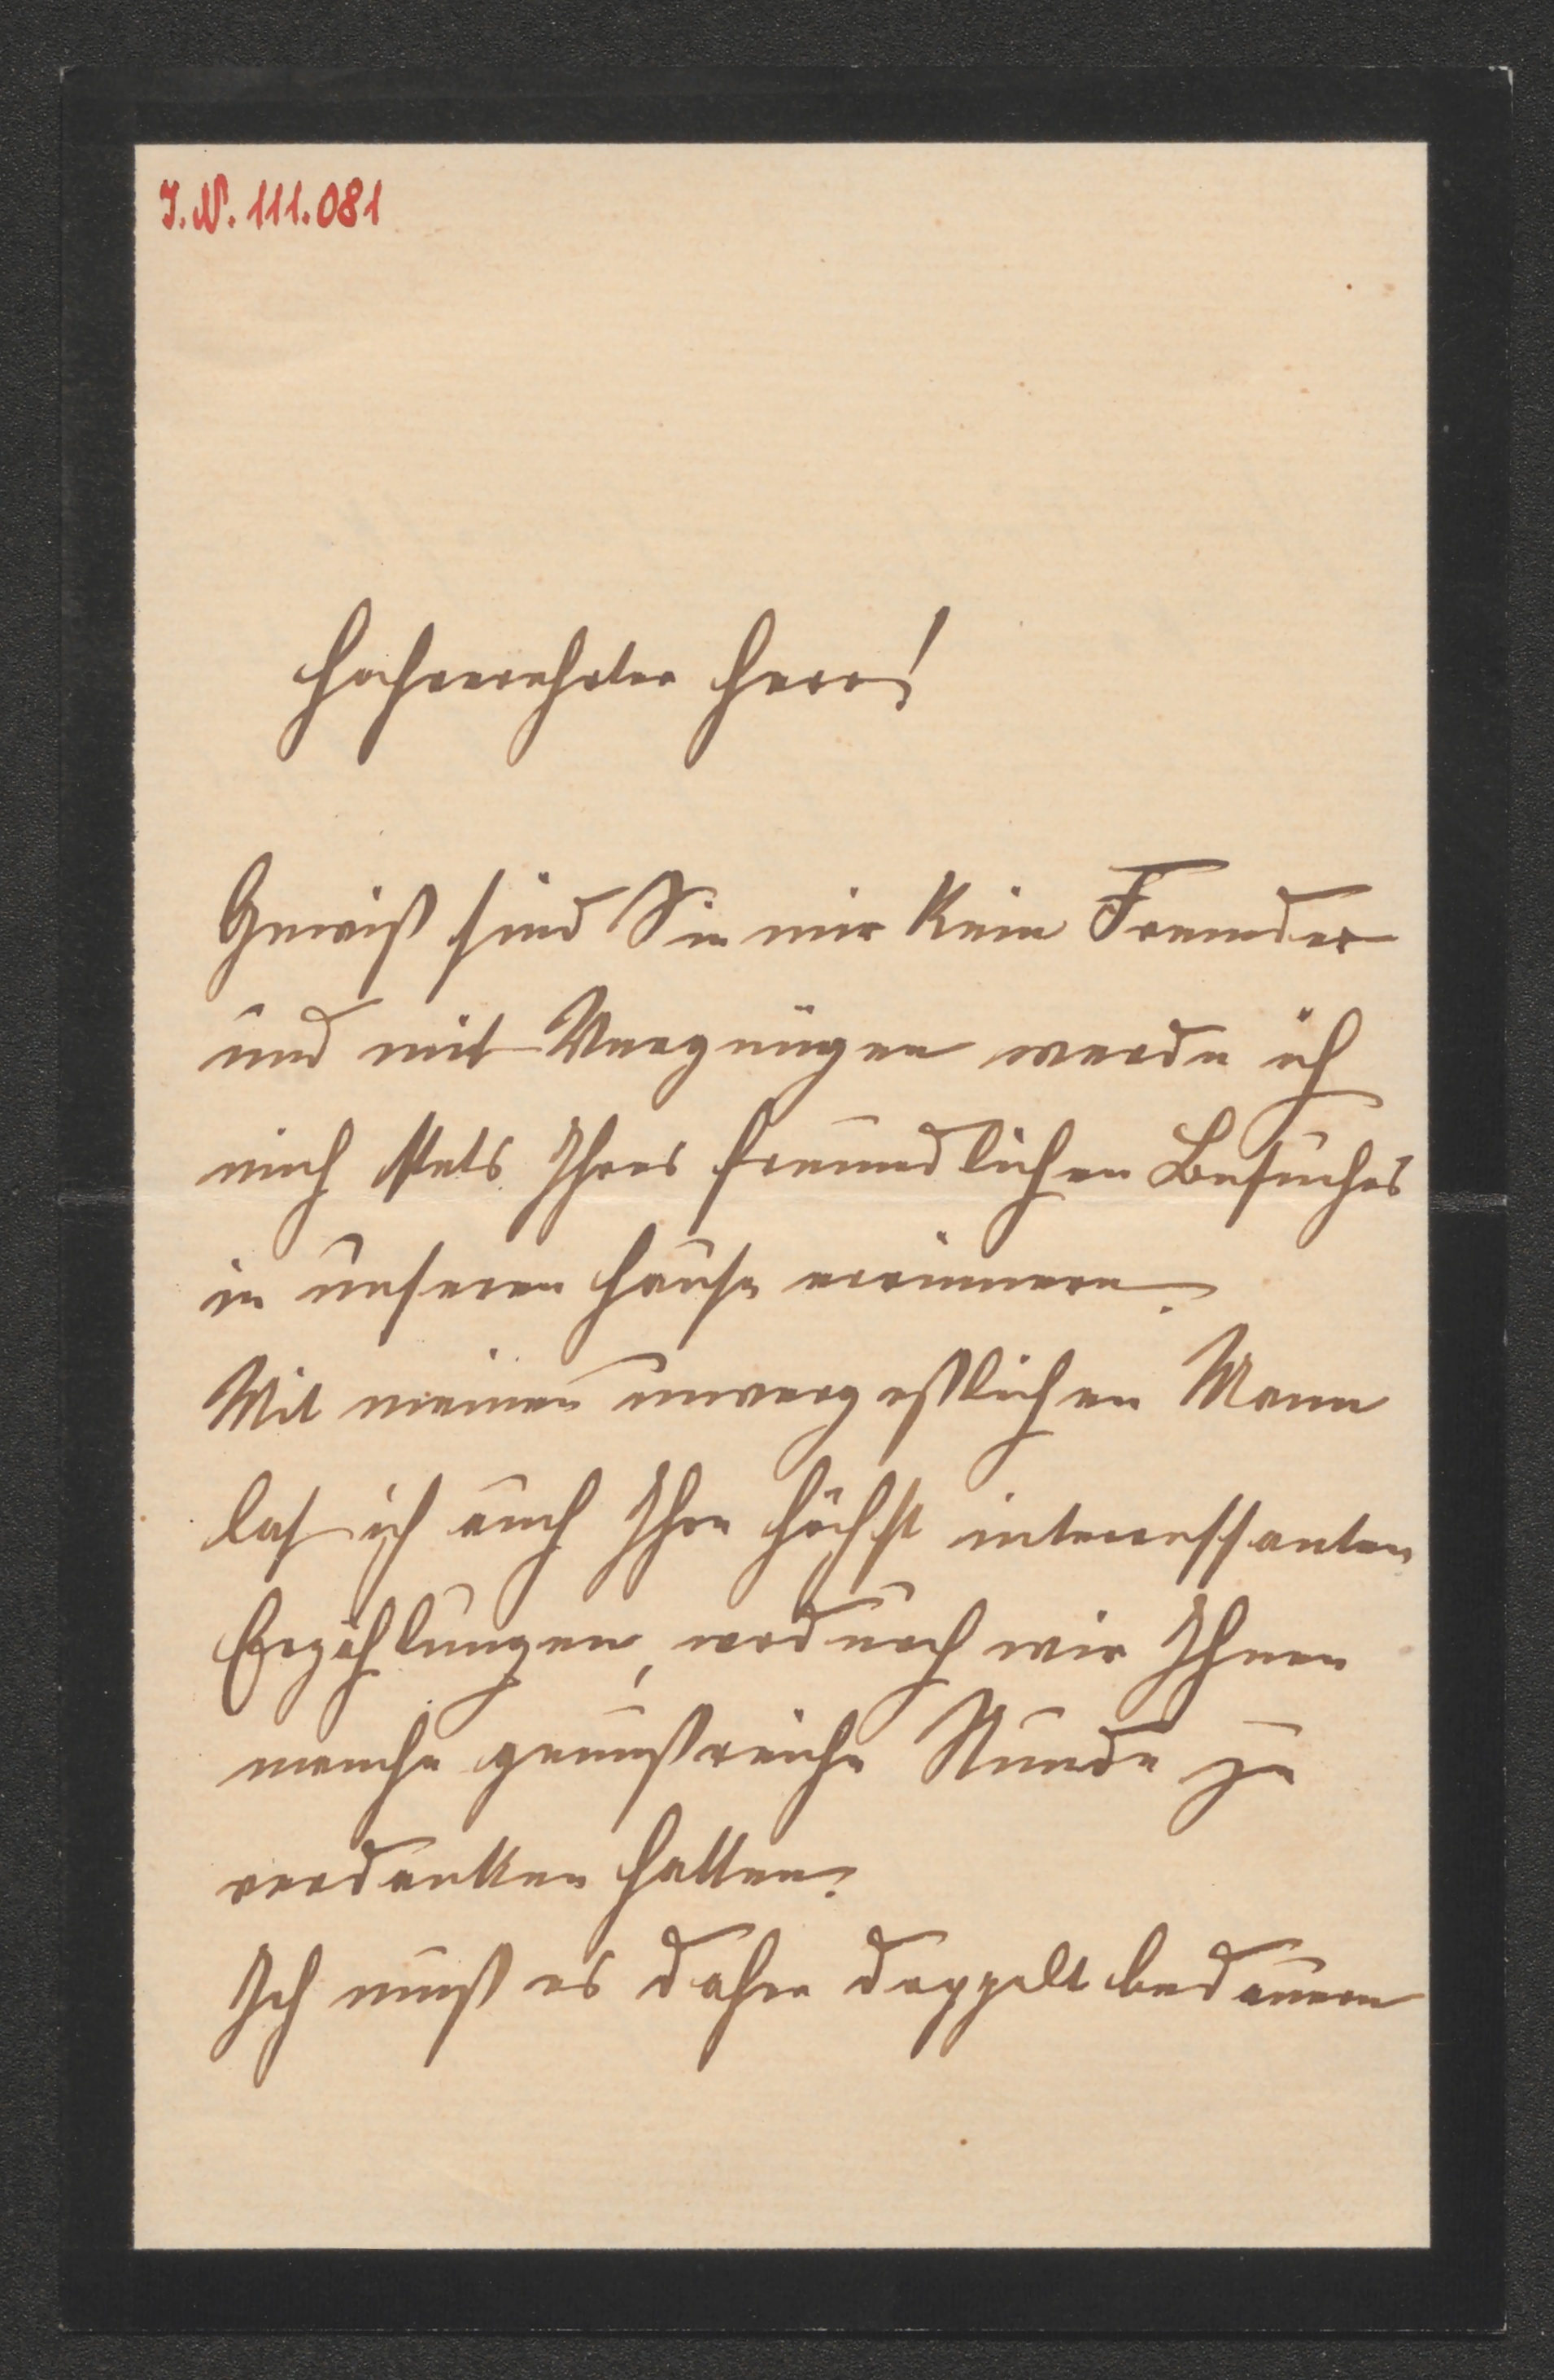 I.N. 111.081
Hochverehrter Herr!
Gewiß sind Sie mir kein Fremder
und mit Vergnügen werde ich
mich stets Ihres freundlichen Besuches
in unseren Hause erinnern.
Mit meinen unvergeßlichen Mann
las ich auch Ihre höchst interessanten
Erzählungen, wodurch wir Ihnen
manche genußreiche Stunde zu
verdanken hatten.
Ich muß es daher doppelt bedauern